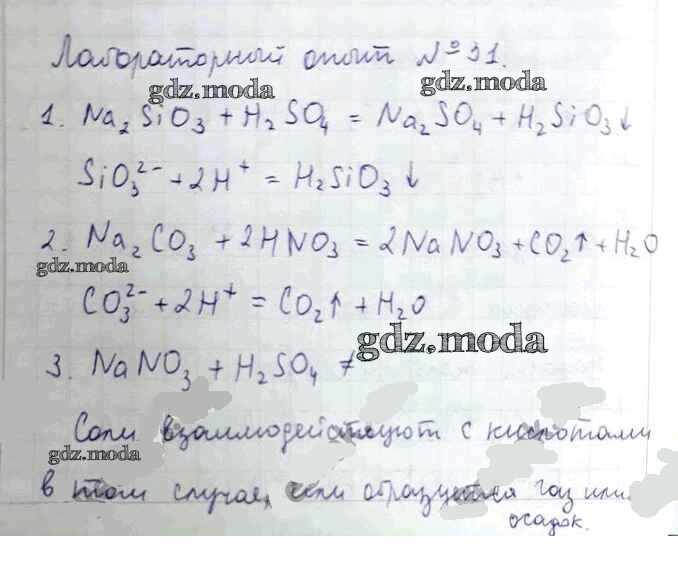 Лабораторный опыт №31.
gdz.moda gdz.moda
1. Na₂SiO₃ + H₂SO₄ = Na₂SO₄ + H₂SiO₃↓
SiO₃²⁻ + 2H⁺ = H₂SiO₃↓
2. Na₂CO₃ + 2HNO₃ = 2NaNO₃ + CO₂↑ + H₂O
gdz.moda
CO₃²⁻ + 2H⁺ = CO₂↑ + H₂O
gdz.moda
3. NaNO₃ + H₂SO₄ ≠
Соли взаимодействуют с кислотами
gdz.moda
в том случае, если образуется газ или
осадок.